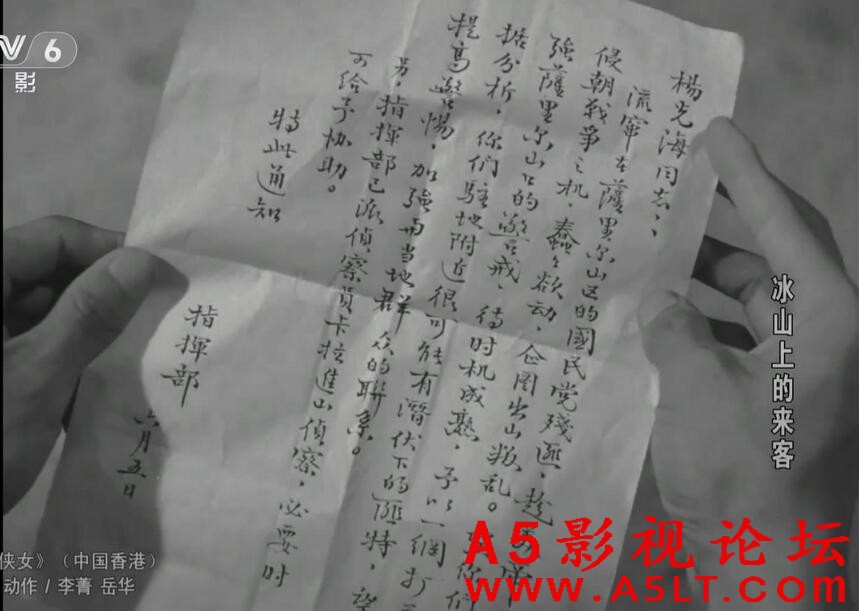 楊光海同志：
流窜在薩里尔山区的國民党殘匪，趁
侵朝战爭之机，蠢々欲动，企图出山叛乱。
強薩里尔山口的警戒，待时机成熟，予以一網打
据分析，你們駐地附近很可能有潛伏下的匪特，望
提高警惕，加強与当地群众的聯系。
另，指揮部已派偵察員卡拉進山偵察，必要时
可给予协助。
特此通知
指揮部
六月五日
冰山上的来客
V 6
影
侠女》（中国香港）
动作 / 李菁 岳华
A5影视论坛
www.A5LT.com